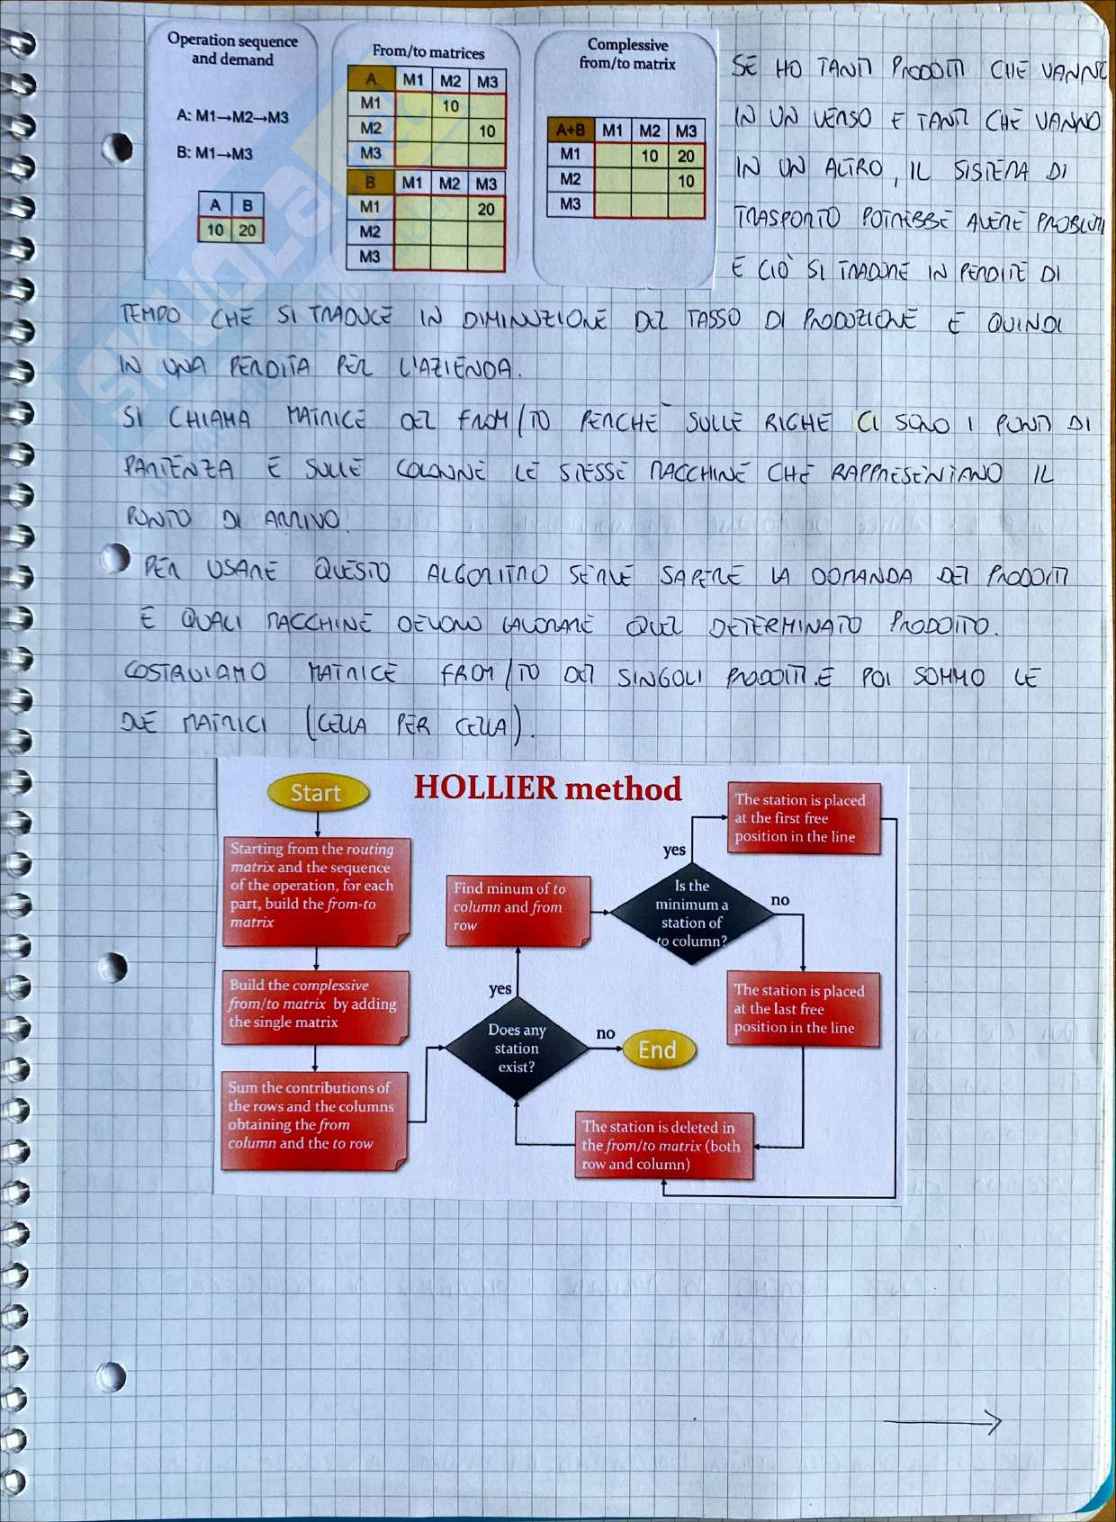 Operation sequence
and demand
A: M1→M2→M3
B: M1→M3
A B
10 20
From/to matrices
A M1 M2 M3
M1 10
M2 10
M3
B M1 M2 M3
M1 20
M2
M3
Complessive
from/to matrix
A+B M1 M2 M3
M1 10 20
M2 10
M3
SE HO TANTI PRODOTTI CHE VANNO
IN UN VERSO E TANTI CHE VANNO
IN UN ALTRO, IL SISTEMA DI
TRASPORTO POTREBBE AVERE PROBLEMI
E CIÒ SI TRADUCE IN PERDITE DI
TEMPO CHE SI TRADUCE IN DIMINUZIONE DEL TASSO DI PRODUZIONE E QUINDI
IN UNA PERDITA PER L'AZIENDA.
SI CHIAMA MATRICE DEL FROM/TO PERCHÉ SULLE RIGHE CI SONO I PUNTI DI
PARTENZA E SULLE COLONNE LE STESSE MACCHINE CHE RAPPRESENTANO IL
PUNTO DI ARRIVO.
PER USARE QUESTO ALGORITMO SERVE SAPERE LA DOMANDA DEI PRODOTTI
E QUALI MACCHINE DEVONO LAVORARE QUEL DETERMINATO PRODOTTO.
COSTRUIAMO MATRICE FROM/TO DEI SINGOLI PRODOTTI E POI SOMMO LE
DUE MATRICI (CELLA PER CELLA).
HOLLIER method
Start
Starting from the routing
matrix and the sequence
of the operation, for each
part, build the from-to
matrix
Build the complessive
from/to matrix by adding
the single matrix
Sum the contributions of
the rows and the columns
obtaining the from
column and the to row
Does any
station
exist?
yes
no
End
Find minum of to
column and from
row
Is the
minimum a
station of
to column?
yes
no
The station is placed
at the first free
position in the line
The station is placed
at the last free
position in the line
The station is deleted in
the from/to matrix (both
row and column)